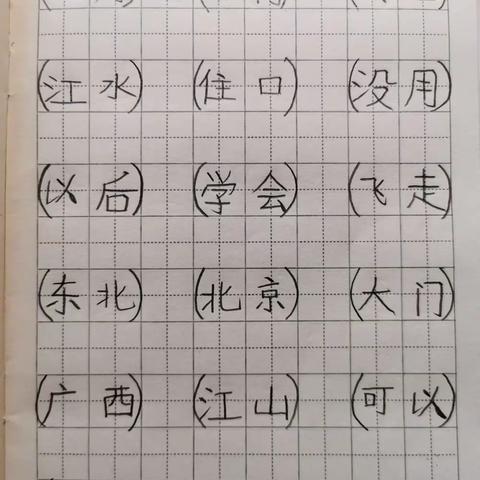 (江水) (住口) (没用)
(以后) (学会) (飞走)
(东北) (北京) (大门)
(广西) (江山) (可以)